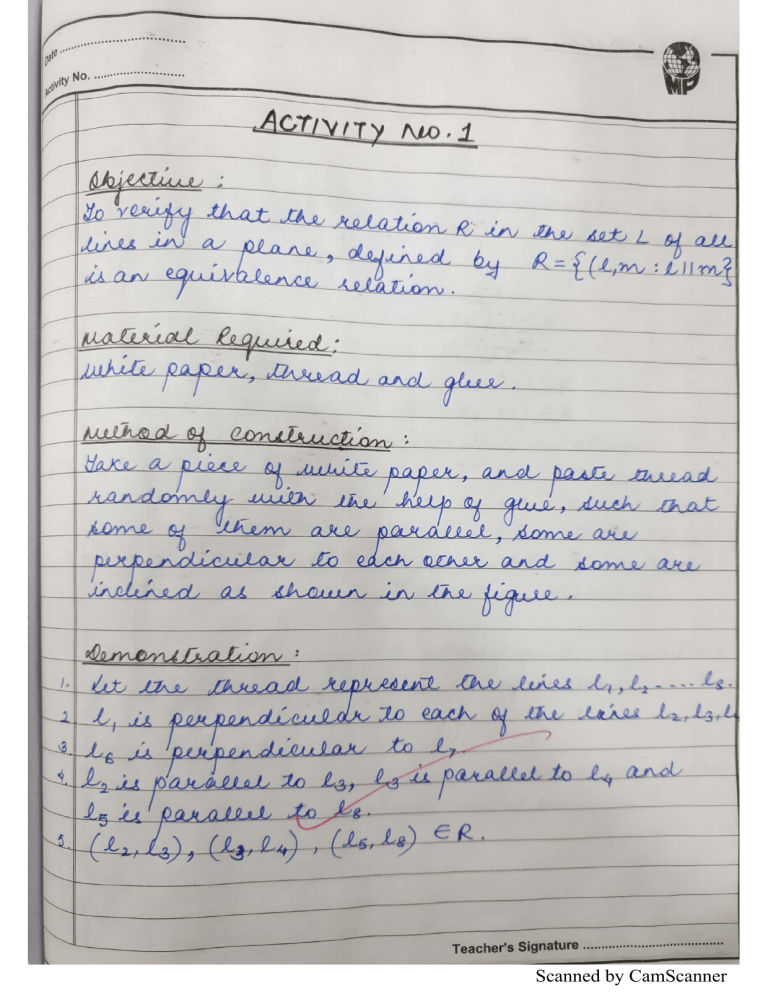 Date ..................................
Activity No. ..........................
MP
ACTIVITY NO. 1
Objective :
To verify that the relation R in the set L of all
lines in a plane, defined by R = {(l,m : l || m}
is an equivalence relation.
Material Required:
White paper, thread and glue.
Method of construction :
Take a piece of white paper, and paste thread
randomly with the help of glue, such that
some of them are parallel, some are
perpendicular to each other and some are
inclined as shown in the figure.
Demonstration :
1. Let the thread represent the lines l₁, l₂ ..... l₈.
2. l₁ is perpendicular to each of the lines l₂, l₃, l
3. l₆ is perpendicular to l₇.
4. l₂ is parallel to l₃, l₃ is parallel to l₄ and
l₅ is parallel to l₈.
5. (l₂, l₃), (l₃, l₄), (l₅, l₈) ∈ R.
Teacher's Signature ......................................
Scanned by CamScanner